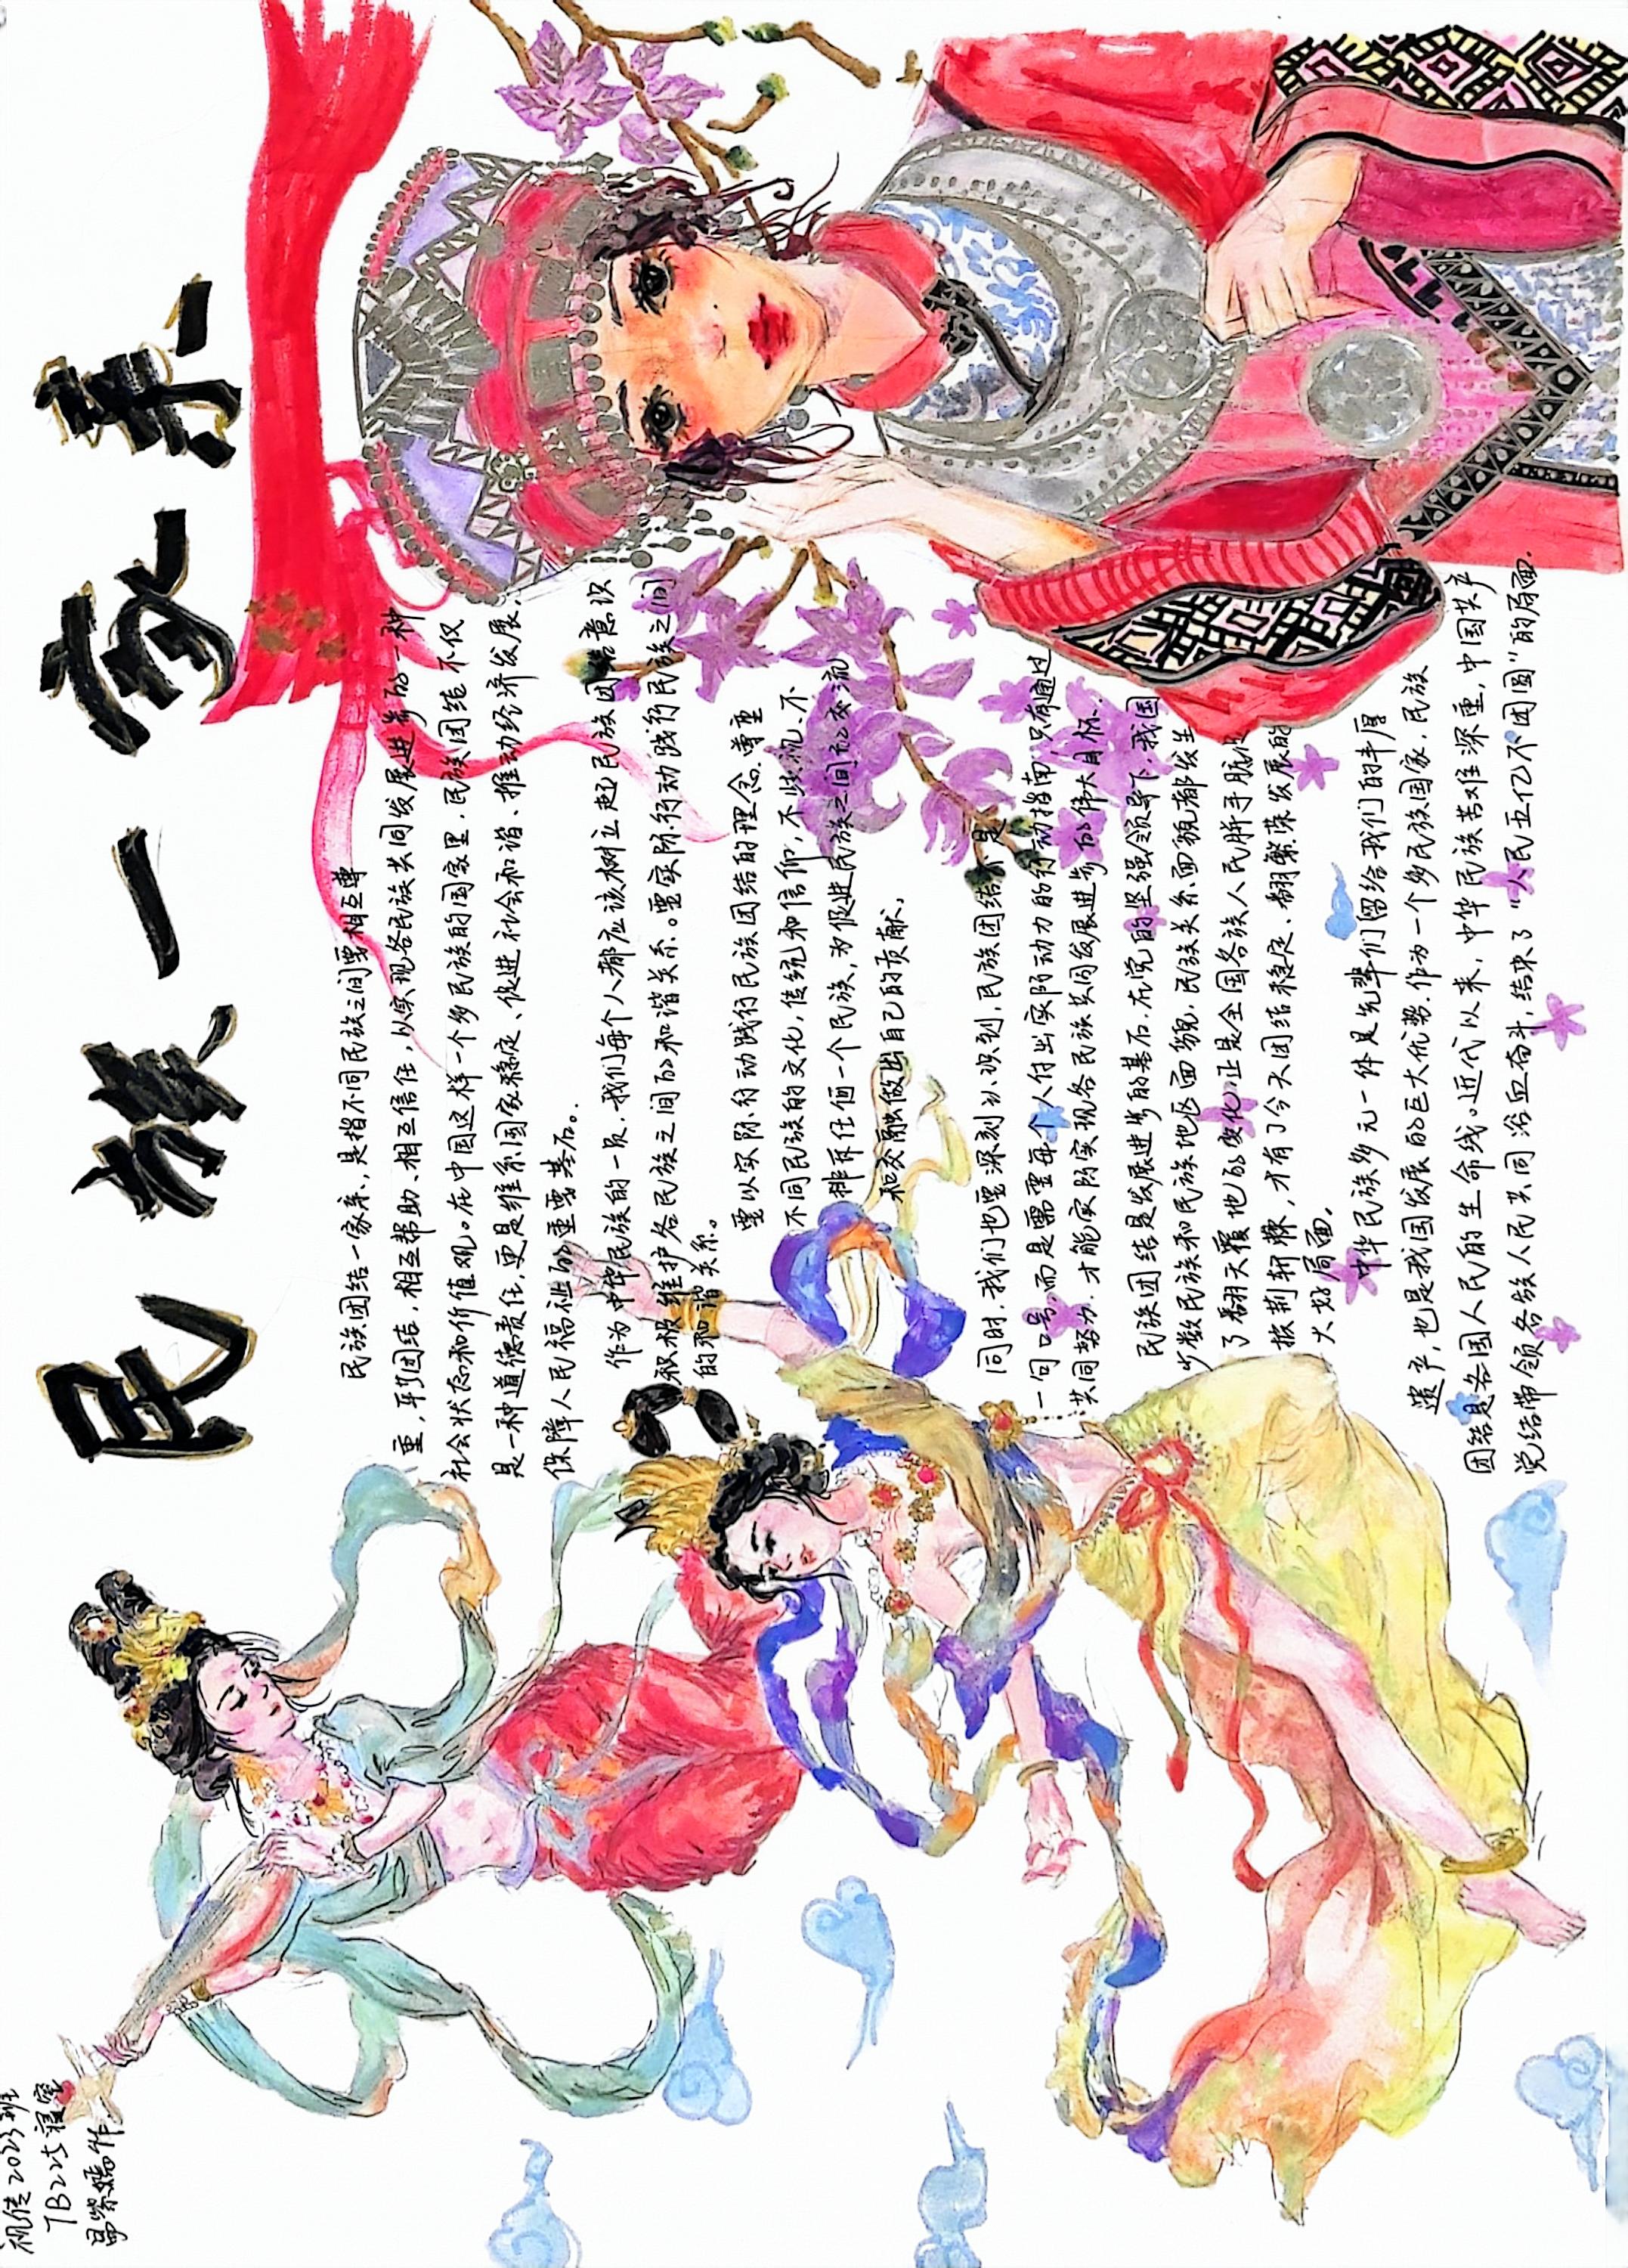 视传2023班
7B225寝室
民族一家亲
民族团结一家亲，是指不同民族之间要相互尊
重，平等团结，相互帮助、相互信任，以实现各民族共同发展进步的一种
社会状态和价值观。在中国这样一个多民族的国家里，民族团结不仅
是一种道德责任，更是维系国家稳定、促进社会和谐、推动经济发展、
保障人民福祉的重要基石。
作为中华民族的一员，我们每个人都应该树立起民族团结意识
积极维护各民族之间的和谐关系。要实际行动践行民族之间
的和谐关系。
要以实际行动践行民族团结的理念，尊重
不同民族的文化，传统和信仰，不歧视、不
排斥任何一个民族，为促进民族之间的交流
和交融做出自己的贡献，
同时，我们也要深刻认识到，民族团结不是
一句口号，而是需要每个人付出实际动力的行动指南，只有通过
共同努力，才能实际实现各民族共同发展进步的伟大目标、
民族团结是发展进步的基石，在党的坚强领导下，我国
少数民族和民族地区面貌，民族关系面貌都发生
了翻天覆地的变化，正是全国各族人民胼手胝足
披荆斩棘，才有了今天团结稳定、翻繁荣发展的
大好局面，
中华民族多元一体是先辈们留给我们的丰厚
遗产，也是我国发展的巨大优势，作为一个多民族国家，民族
团结是各国人民的生命线。近代以来，中华民族苦难深重，中国共产
党结带领各族人民共同浴血奋斗，结束了“人民五亿不团圆”的局面.